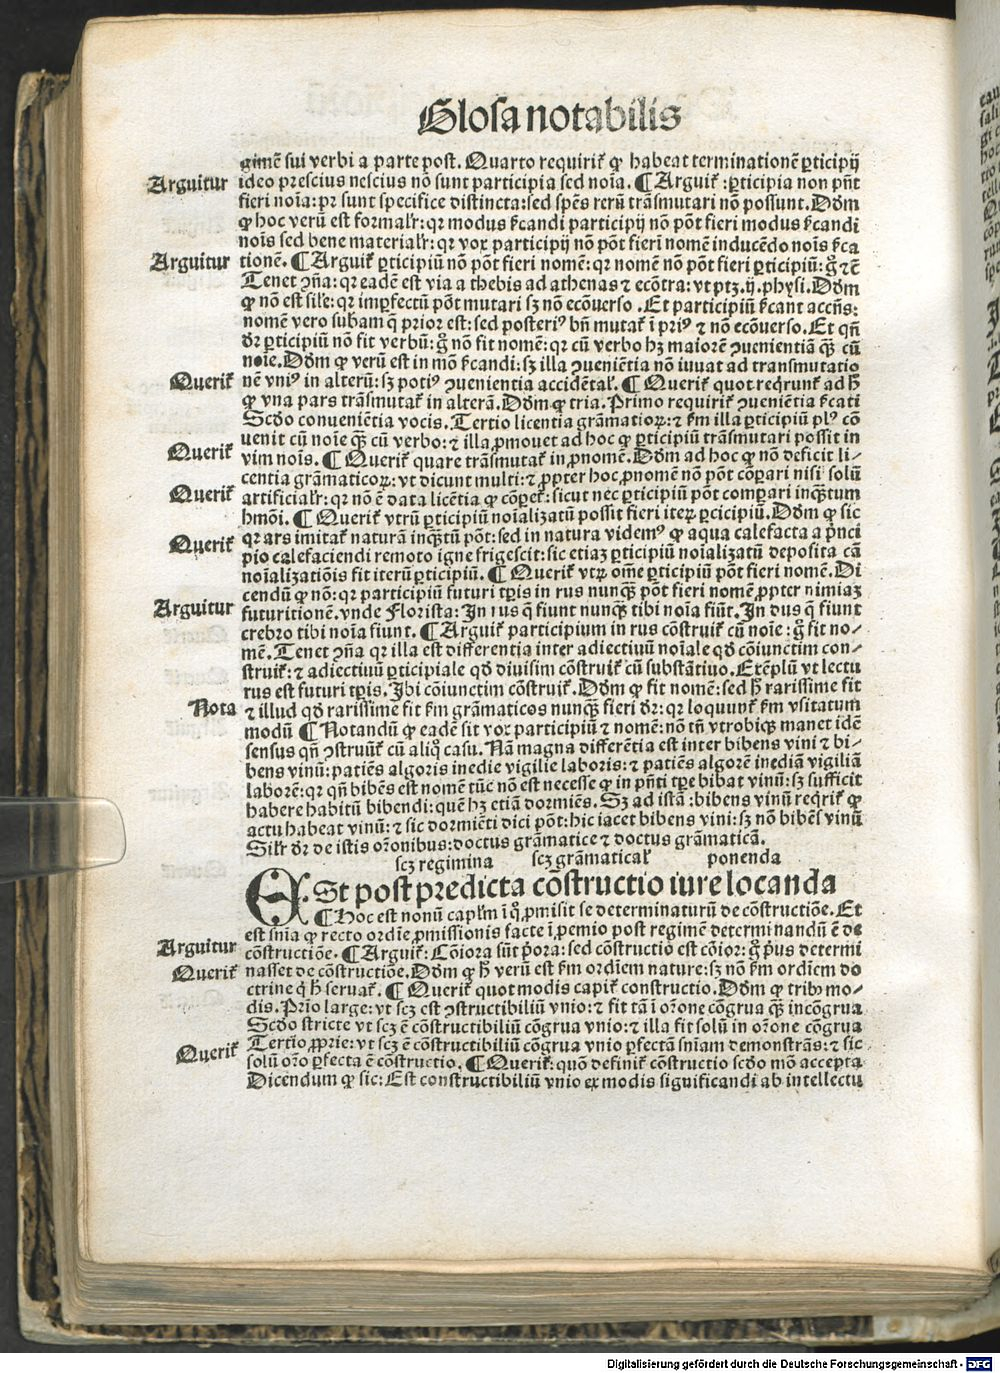 Glosa notabilis
gimē sui verbi a parte post. Quarto requirit̄ ꝙ habeat terminationē ꝑticipij
Arguitur
ideo prescius nescius nō sunt participia sed noīa. ¶ Arguit̄: ꝑticipia non pn̄t
fieri noīa: qr sunt specifice distincta: sed spēs rerū trāsmutari nō possunt. Dōm
ꝙ hoc verū est formalr̄: qr modus s̄candi participij nō pōt fieri modus s̄candi
noīs sed bene materialr̄: qr vox participij nō pōt fieri nomē inducēdo noīs s̄ca
Arguitur
tionē. ¶ Arguit̄ ꝑticipiū nō pōt fieri nomē: qr nomē nō pōt fieri ꝑticipiū: gͦ ⁊c̄
Tenet ꝯn̄a: qr eadē est via a thebis ad athenas ⁊ ecōtra: vt ptꝫ .ij. physi. Dōm
ꝙ nō est sil̄e: qr imꝑfectū pōt mutari sꝫ nō ecōuerso. Et participiū s̄cant accn̄s:
nomē vero subam̄ q̄ prior est: sed posteriꝰ bn̄ mutat̄ ī priꝰ ⁊ nō ecōuerso. Et qn̄
dr̄ ꝑticipiū nō fit verbū: gͦ nō fit nomē: qr cū verbo hꝫ maiorē ꝯuenientiā qꝫ̄ cū
noīe. Dōm ꝙ verū est in mō s̄candi: sꝫ illa ꝯueniētia nō iuuat ad transmutatio
Querit̄
nē vniꝰ in alterū: sꝫ potiꝰ ꝯuenientia accidētal̄. ¶ Querit̄ quot reqrunt̄ ad h̄
ꝙ vna pars trāsmutat̄ in alterā. Dōm ꝙ tria. Primo requirit̄ ꝯueniētia s̄cati
Scd̄o conueniētia vocis. Tertio licentia grāmatioꝝ: ⁊ s̄m illa ꝑticipiū plꝰ cō
uenit cū noīe qꝫ̄ cū verbo: ⁊ illa ꝓmouet ad hoc ꝙ ꝑticipiū trāsmutari possit in
Querit̄
vim noīs. ¶ Querit̄ quare trāsmutat̄ in ꝓnomē. Dōm ad hoc ꝙ nō deficit li⸗
centia grāmaticoꝝ: vt dicunt multi: ⁊ ꝓpter hoc ꝓnomē nō pōt cōꝑari nisi solū
Querit̄
artificialr̄: qr nō ē data licētia ꝙ cōꝑet̄: sicut nec ꝑticipiū pōt comꝑari inqꝫ̄tum
hm̄oi. ¶ Querit̄ vtrū ꝑticipiū noīalizatū possit fieri iteꝝ ꝑcicipiū. Dōm ꝙ sic
Querit̄
qr ars imitat̄ naturā inqꝫ̄tū pōt: sed in natura videmꝰ ꝙ aqua calefacta a prīnci
pio calefaciendi remoto igne frigescit: sic etiaꝫ ꝑticipiū noīalizatū deposita cā
noīalizatiōis fit iterū ꝑticipiū. ¶ Querit̄ vtꝝ om̄e ꝑticipiū pōt fieri nomē. Di
cendū ꝙ nō: qr participiū futuri tꝑis in rus nunqꝫ̄ pōt fieri nomē ꝓpter nimiaꝫ
Arguitur
futuritionē. vnde Florista: In rus q̄ fiunt nunqꝫ̄ tibi noīa fiūt. In dus q̄ fiunt
crebro tibi noīa fiunt. ¶ Arguit̄ participium in rus cōstruit̄ cū noīe: gͦ fit no⸗
mē. Tenet ꝯn̄a qr illa est differentia inter adiectiuū noīale qd̄ cōiunctim con⸗
struit̄: ⁊ adiectiuū ꝑticipiale qd̄ diuisim cōstruit̄ cū substātiuo. Exēplū vt lectu
rus est futuri tꝑis. Ibi cōiunctim cōstruit̄. Dōm ꝙ fit nomē: sed h̄ rarissime fit
Nota
⁊ illud qd̄ rarissime fit s̄m grāmaticos nunqꝫ̄ fieri dr̄: qr loquunt̄ s̄m vsitatum
modū ¶ Notandū ꝙ eadē sit vox participiū ⁊ nomē: nō tn̄ vtrobiqꝫ manet idē
sensus qn̄ ꝯstruūt̄ cū aliqͦ casu. Nā magna differētia est inter bibens vini ⁊ bi⸗
bens vinū: patiēs algoris inedie vigilie laboris: ⁊ patiēs algorē inediā vigiliā
laborē: qr qn̄ bibēs est nomē tūc nō est necesse ꝙ in pn̄ti tꝑe bibat vinū: sꝫ sufficit
habere habitū bibendi: quē hꝫ etiā dormiēs. Sꝫ ad istā: bibens vinū reqrit̄ ꝙ
actu habeat vinū: ⁊ sic dormiēti dici pōt: hic iacet bibens vini: sꝫ nō bibēs vinū
Silr̄ dr̄ de istis or̄onibus: doctus grāmatice ⁊ doctus grāmaticā.
scꝫ regimina scꝫ grāmatical̄ ponenda
ESt post predicta cōstructio iure locanda
¶ Hoc est nonū caplm̄ ī qͦ ꝓmisit se determinaturū de cōstructiōe. Et
est sn̄ia ꝙ recto ordīe ꝓmissionis facte ī ꝓemio post regimē determinandū ē de
Arguitur
cōstructiōe. ¶ Arguit̄: Cōiora sūt pͥora: sed cōstructio est cōior: gͦ pͥus determi
Querit̄
nasset de cōstructiōe. Dōm ꝙ h̄ verū est s̄m ordīem nature: sꝫ nō s̄m ordīem do
ctrine q̄ h̄ seruat̄. ¶ Querit̄ quot modis capit̄ constructio. Dōm ꝙ tribꝰ mo⸗
dis. Prīo large: vt scꝫ est ꝯstructibiliū vnio: ⁊ fit tā ī or̄one cōgrua qꝫ̄ incōgrua
Scd̄o stricte vt scꝫ ē cōstructibiliū cōgrua vnio: ⁊ illa fit solū in or̄one cōgrua
Querit̄
Tertio ꝓprie: vt scꝫ ē cōstructibiliū cōgrua vnio ꝑfectā sn̄iam demonstrās: ⁊ sic
solū or̄o ꝑfecta ē cōstructio. ¶ Querit̄: quō definit̄ cōstructio scd̄o mō accepta
Dicendum ꝙ sic: Est constructibiliū vnio ex modis significandi ab intellectu
Digitalisierung gefördert durch die Deutsche Forschungsgemeinschaft - DFG